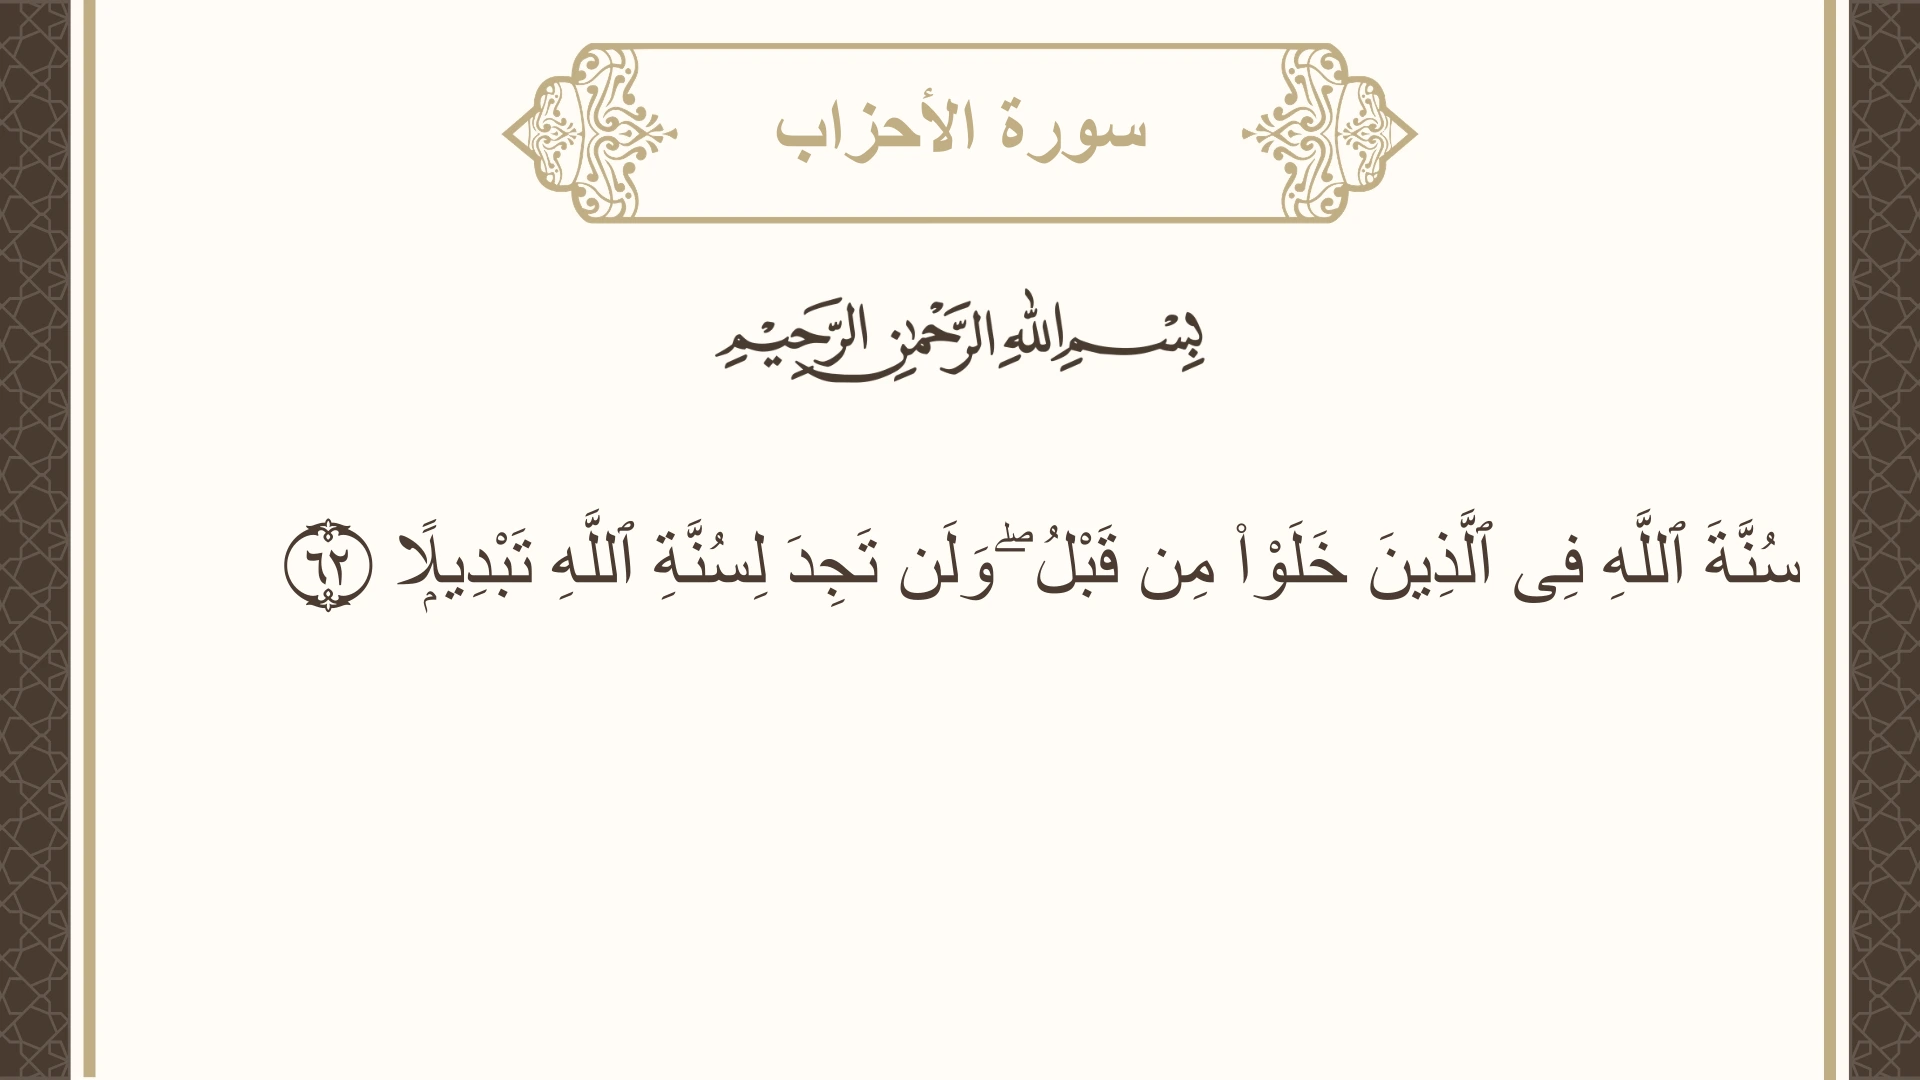 سورة الأحزاب
بِسْمِ اللهِ الرَّحْمٰنِ الرَّحِيْمِ
سُنَّةَ ٱللَّهِ فِى ٱلَّذِينَ خَلَوْا۟ مِن قَبْلُ ۖ وَلَن تَجِدَ لِسُنَّةِ ٱللَّهِ تَبْدِيلًۭا ٦٢